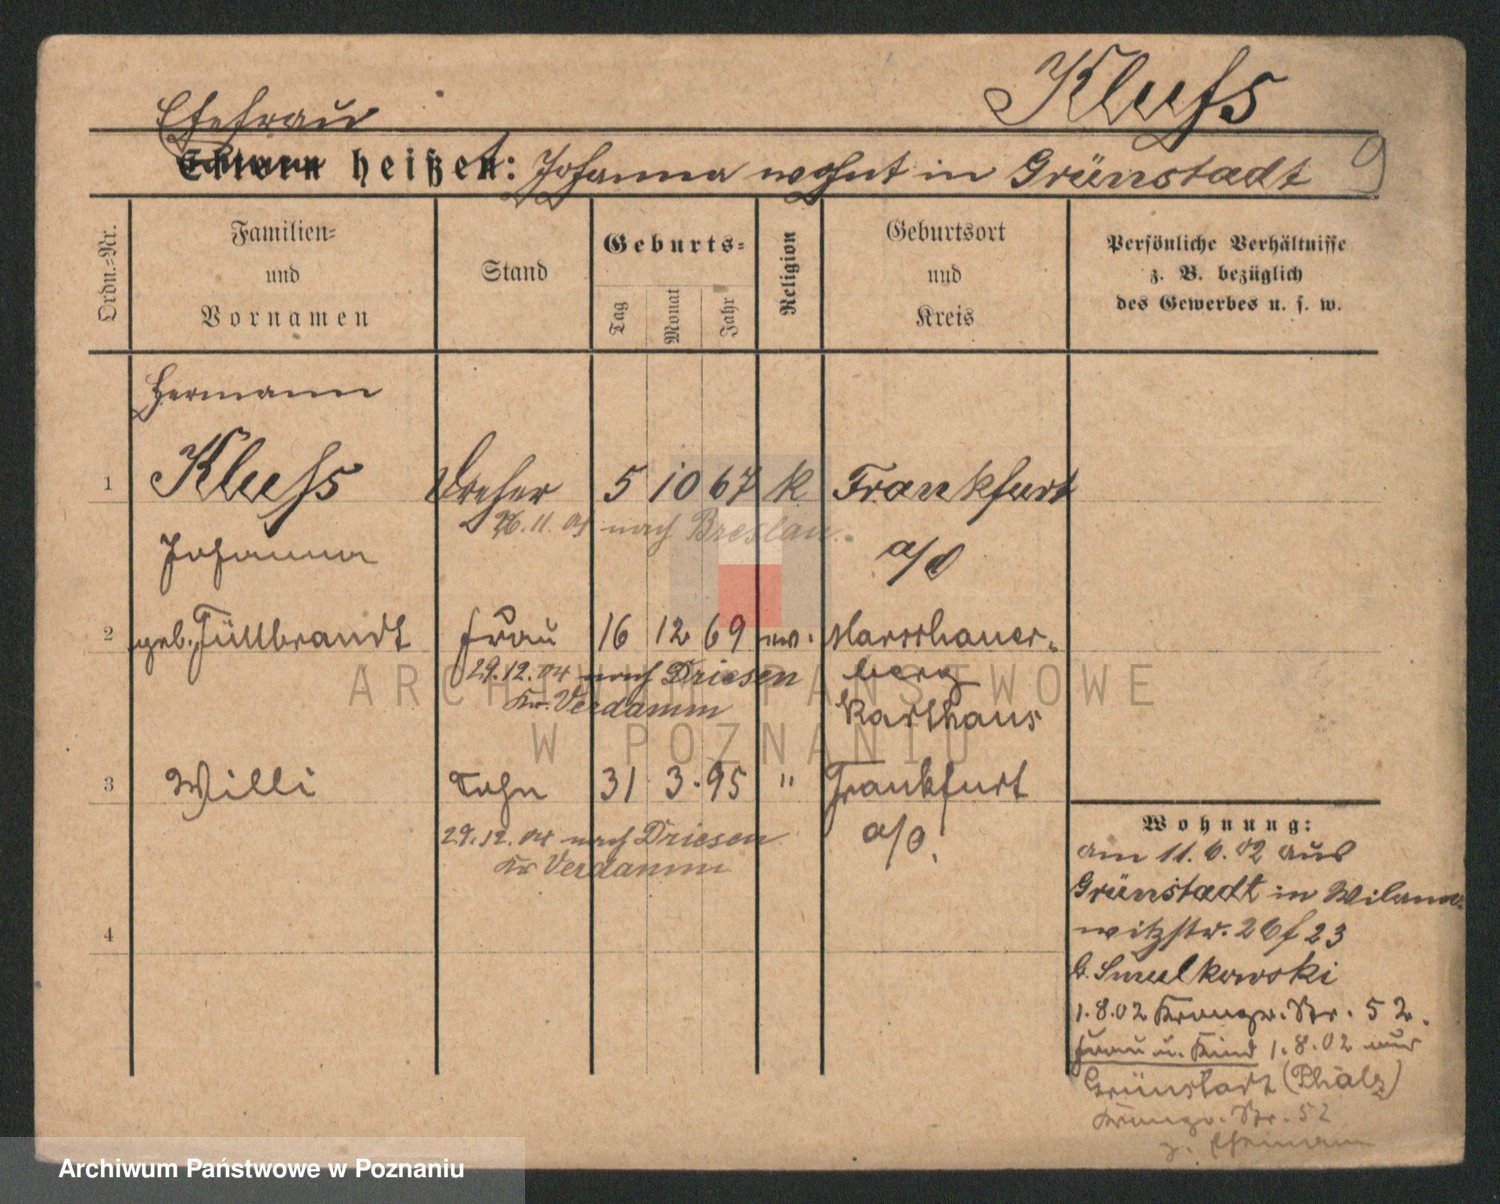 Klufs
Ehefrau
Eltern heißen: Johanna wohnt in Grünstadt
9
Ordn.-Nr.
Familien-
und
Vornamen
Stand
Geburts-
Tag
Monat
Jahr
Religion
Geburtsort
und
Kreis
Persönliche Verhältnisse
z. B. bezüglich
des Gewerbes u. s. w.
Hermann
1 Klufs Dreher 5 10 67 k Frankfurt
26.11.04 nach Breslau.
Johanna a/O
2 geb. Füllbrandt Frau 16 12 69 ev.
29.12.04 nach Driesen berg
Kr. Verdamm Karthaus
3 Willi Sohn 31 3. 95 " Frankfurt
29.12.04 nach Driesen a/O.
Kr Verdamm
4
Wohnung:
am 11.6.02 aus
Grünstadt in
witzstr. 26 f 23
b. Smulkowski
1.8.02 Kronpr. Str. 52.
Frau u. Kind 1.8.02 aus
Grünstadt (Phälz)
Kronpr. Str. 52
z. Ehemann
ARCHIWUM PAŃSTWOWE
W POZNANIU
Archiwum Państwowe w Poznaniu